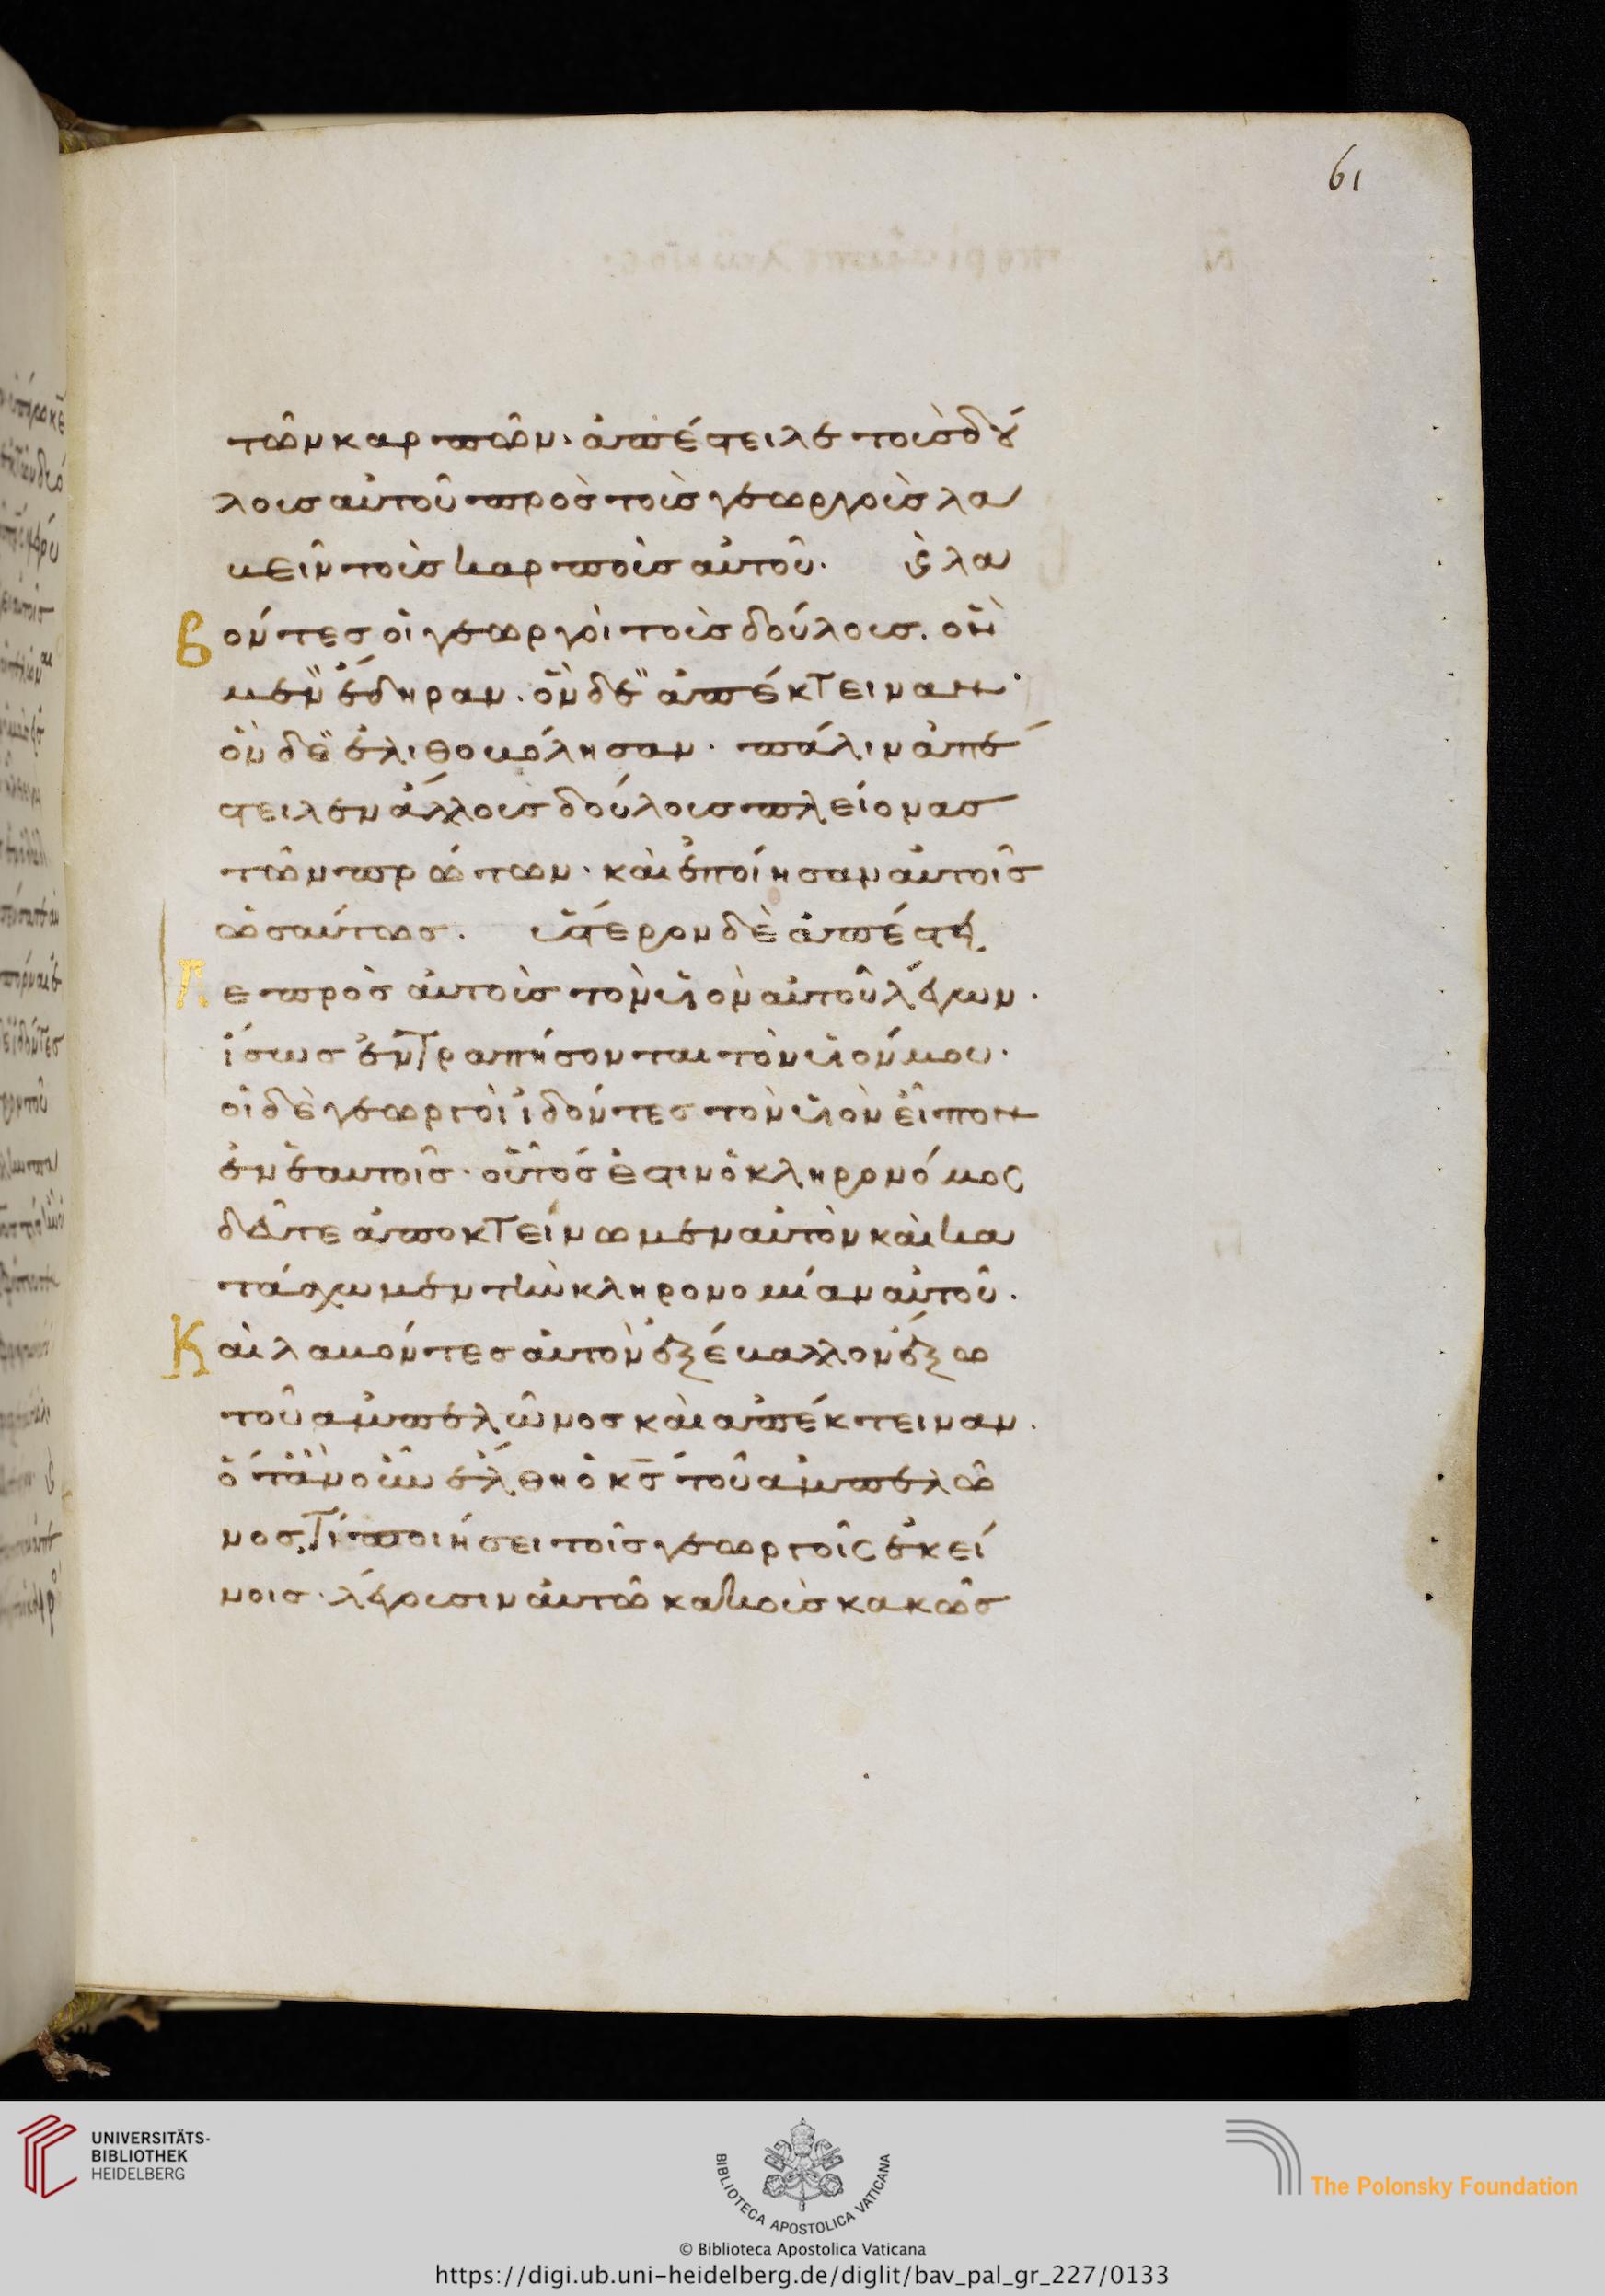 61
τῶν καρπῶν· ἀπέστειλε τοὺς δού
λους αὐτοῦ πρὸς τοὺς γεωργοὺς λα
βεῖν τοὺς καρποὺς αὐτοῦ· ϗ λα
βόντες οἱ γεωργοὶ τοὺς δούλους. ὃν
μὲν ἔδηραν. ὃν δὲ ἀπέκτειναν·
ὃν δὲ ἐλιθοβόλησαν· πάλιν ἀπέ
στειλεν ἄλλους δούλους πλείονας
τῶν πρώτων· καὶ ἐποίησαν αὐτοῖς
ὡσαύτως. ὕστερον δὲ ἀπέστει
λε πρὸς αὐτοὺς τὸν υἱὸν αὐτοῦ λέγων·
ἴσως ἐντραπήσονται τὸν υἱόν μου·
οἱ δὲ γεωργοὶ ἰδόντες τὸν υἱὸν εἶπον
ἐν ἑαυτοῖς· οὗτός ἐστιν ὁ κληρονόμος
δεῦτε ἀποκτείνωμεν αὐτὸν καὶ κα
τάσχωμεν τὴν κληρονομίαν αὐτοῦ·
Καὶ λαβόντες αὐτὸν ἐξέβαλλον ἔξω
τοῦ ἀμπελῶνος καὶ ἀπέκτειναν·
ὅταν οὖν ἔλθη ὁ κς τοῦ ἀμπελῶ
νος, τί ποιήσει τοῖς γεωργοῖς ἐκεί
νοις· λέγουσιν αὐτῶ κακοὺς κακῶς
UNIVERSITÄTS-
BIBLIOTHEK
HEIDELBERG
BIBLIOTECA APOSTOLICA VATICANA
The Polonsky Foundation
© Biblioteca Apostolica Vaticana
https://digi.ub.uni-heidelberg.de/diglit/bav_pal_gr_227/0133